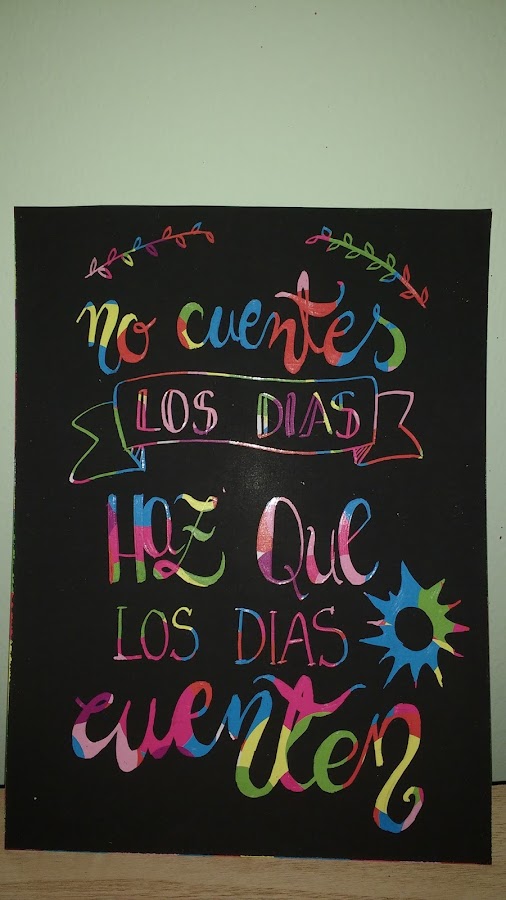 no cuentes
LOS DIAS
Haz Que
LOS DIAS
cuenten